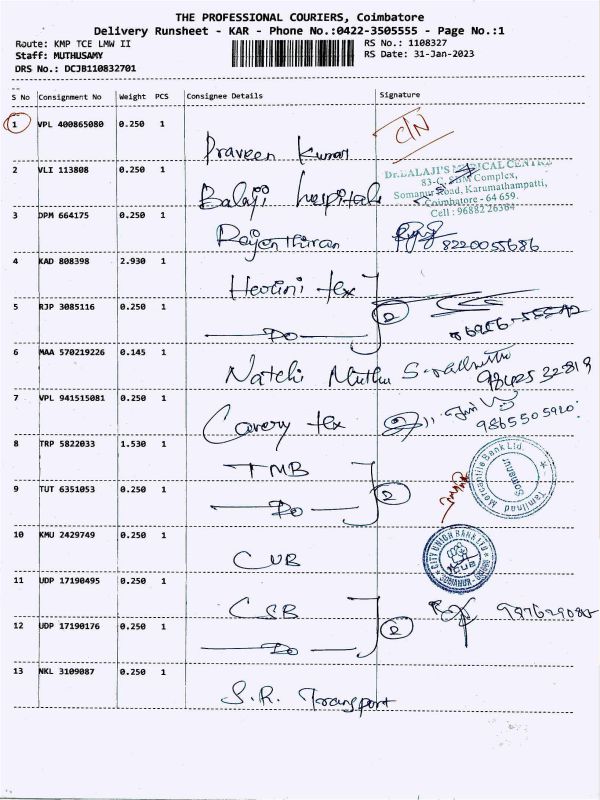 THE PROFESSIONAL COURIERS, Coimbatore
Delivery Runsheet - KAR - Phone No.:0422-3505555 - Page No.:1
Route: KMP TCE LMW II
RS No.: 1108327
Staff: MUTHUSAMY
RS Date: 31-Jan-2023
DRS No.: DCJB110832701
S No Consignment No Weight PCS Consignee Details Signature
1 VPL 400865080 0.250 1 Praveen Kumar C/N
2 VLI 113808 0.250 1 Balaji hospital
Dr.BALAJI'S MEDICAL CENTRE
83-C, SBM Complex,
Somanur Road, Karumathampatti,
Coimbatore - 64 659.
Cell : 96882 26364
3 DPM 664175 0.250 1 Rajenthiran 8220055686
4 KAD 808398 2.930 1 tex
5 RJP 3085116 0.250 1 Do 2
6 MAA 570219226 0.145 1 Natchi Muthu 98425 32819
7 VPL 941515081 0.250 1 Cavery tex 9865505920
8 TRP 5822033 1.530 1 TMB
Tamilnad Mercantile Bank Ltd.
Somanur
9 TUT 6351053 0.250 1 Do 2
10 KMU 2429749 0.250 1 CUB
CITY UNION BANK LTD
CUB
SOMANUR
11 UDP 17190495 0.250 1 CSB
12 UDP 17190176 0.250 1 Do 2
13 NKL 3109087 0.250 1 S.R. Transport